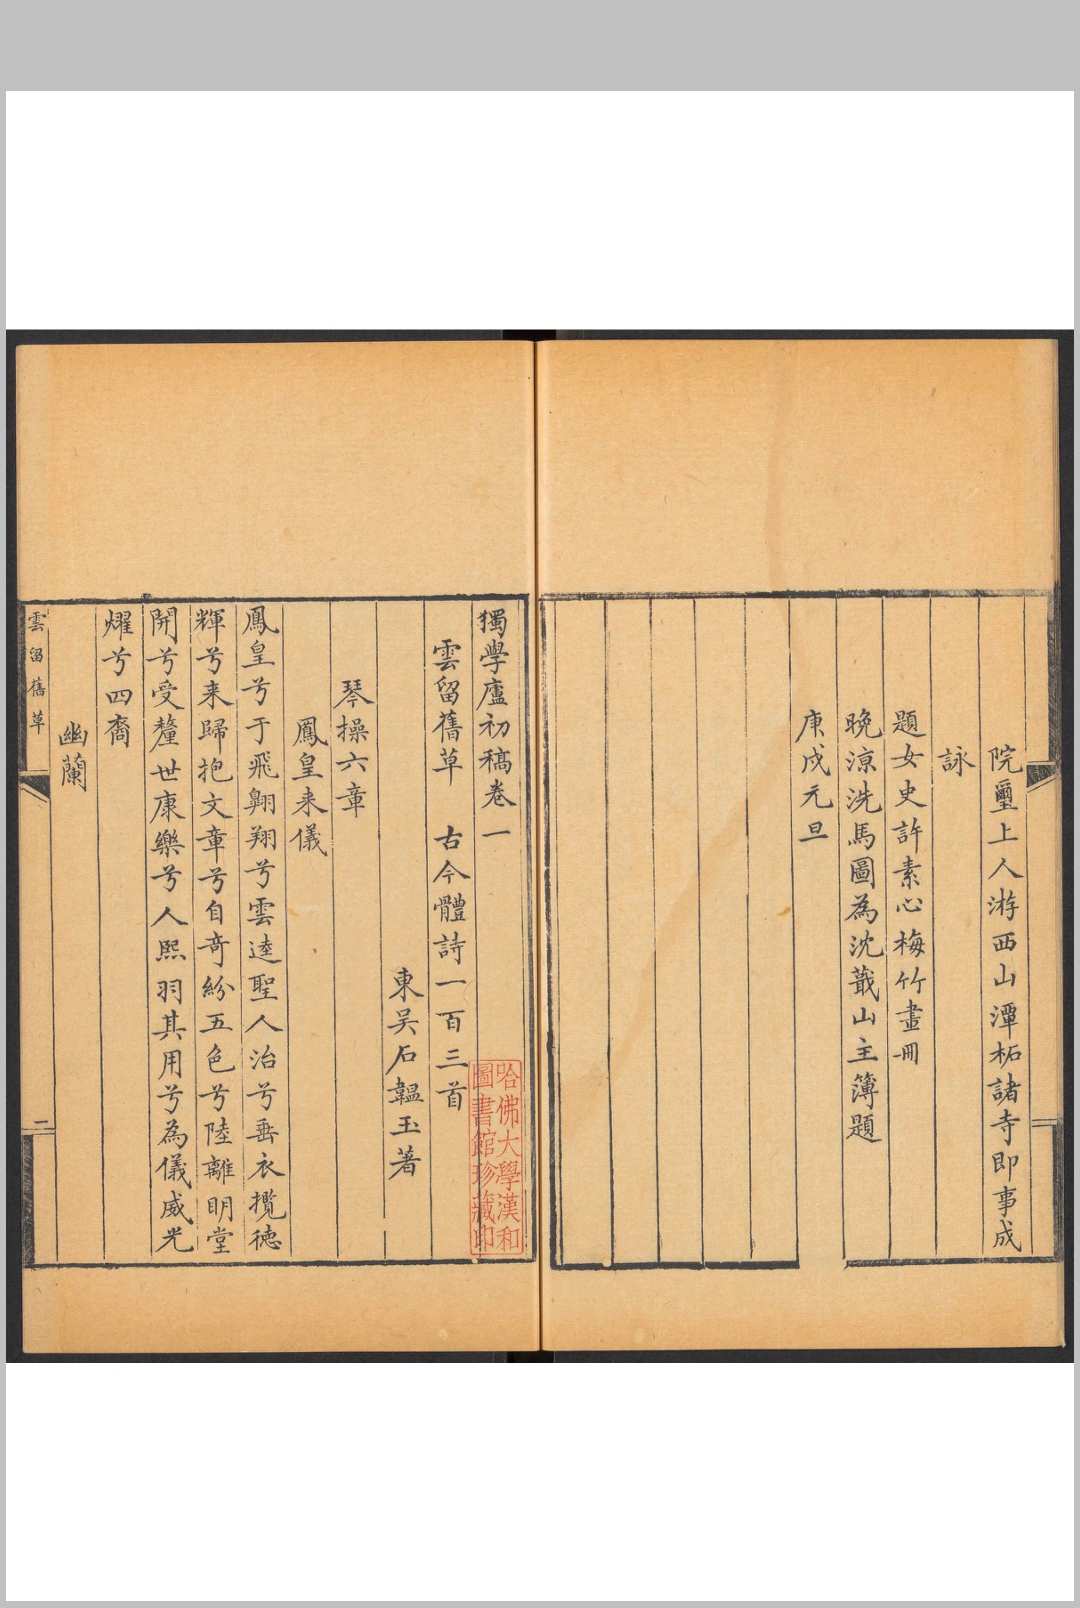 院璽上人游西山潭柘諸寺即事成
詠
題女史許素心梅竹畫冊
晚涼洗馬圖為沈蕺山主簿題
庚戌元旦
獨學廬初稿卷一
雲留舊草 古今體詩一百三首
東吴石韞玉著
琴操六章
鳳皇来儀
鳳皇兮于飛翺翔兮雲逵聖人治兮垂衣攬德
輝兮来歸抱文章兮自奇紛五色兮陸離明堂
開兮受釐世康樂兮人熙羽其用兮為儀威光
燿兮四裔
幽蘭
雲留舊草
二
哈佛大學漢和
圖書館珍藏印